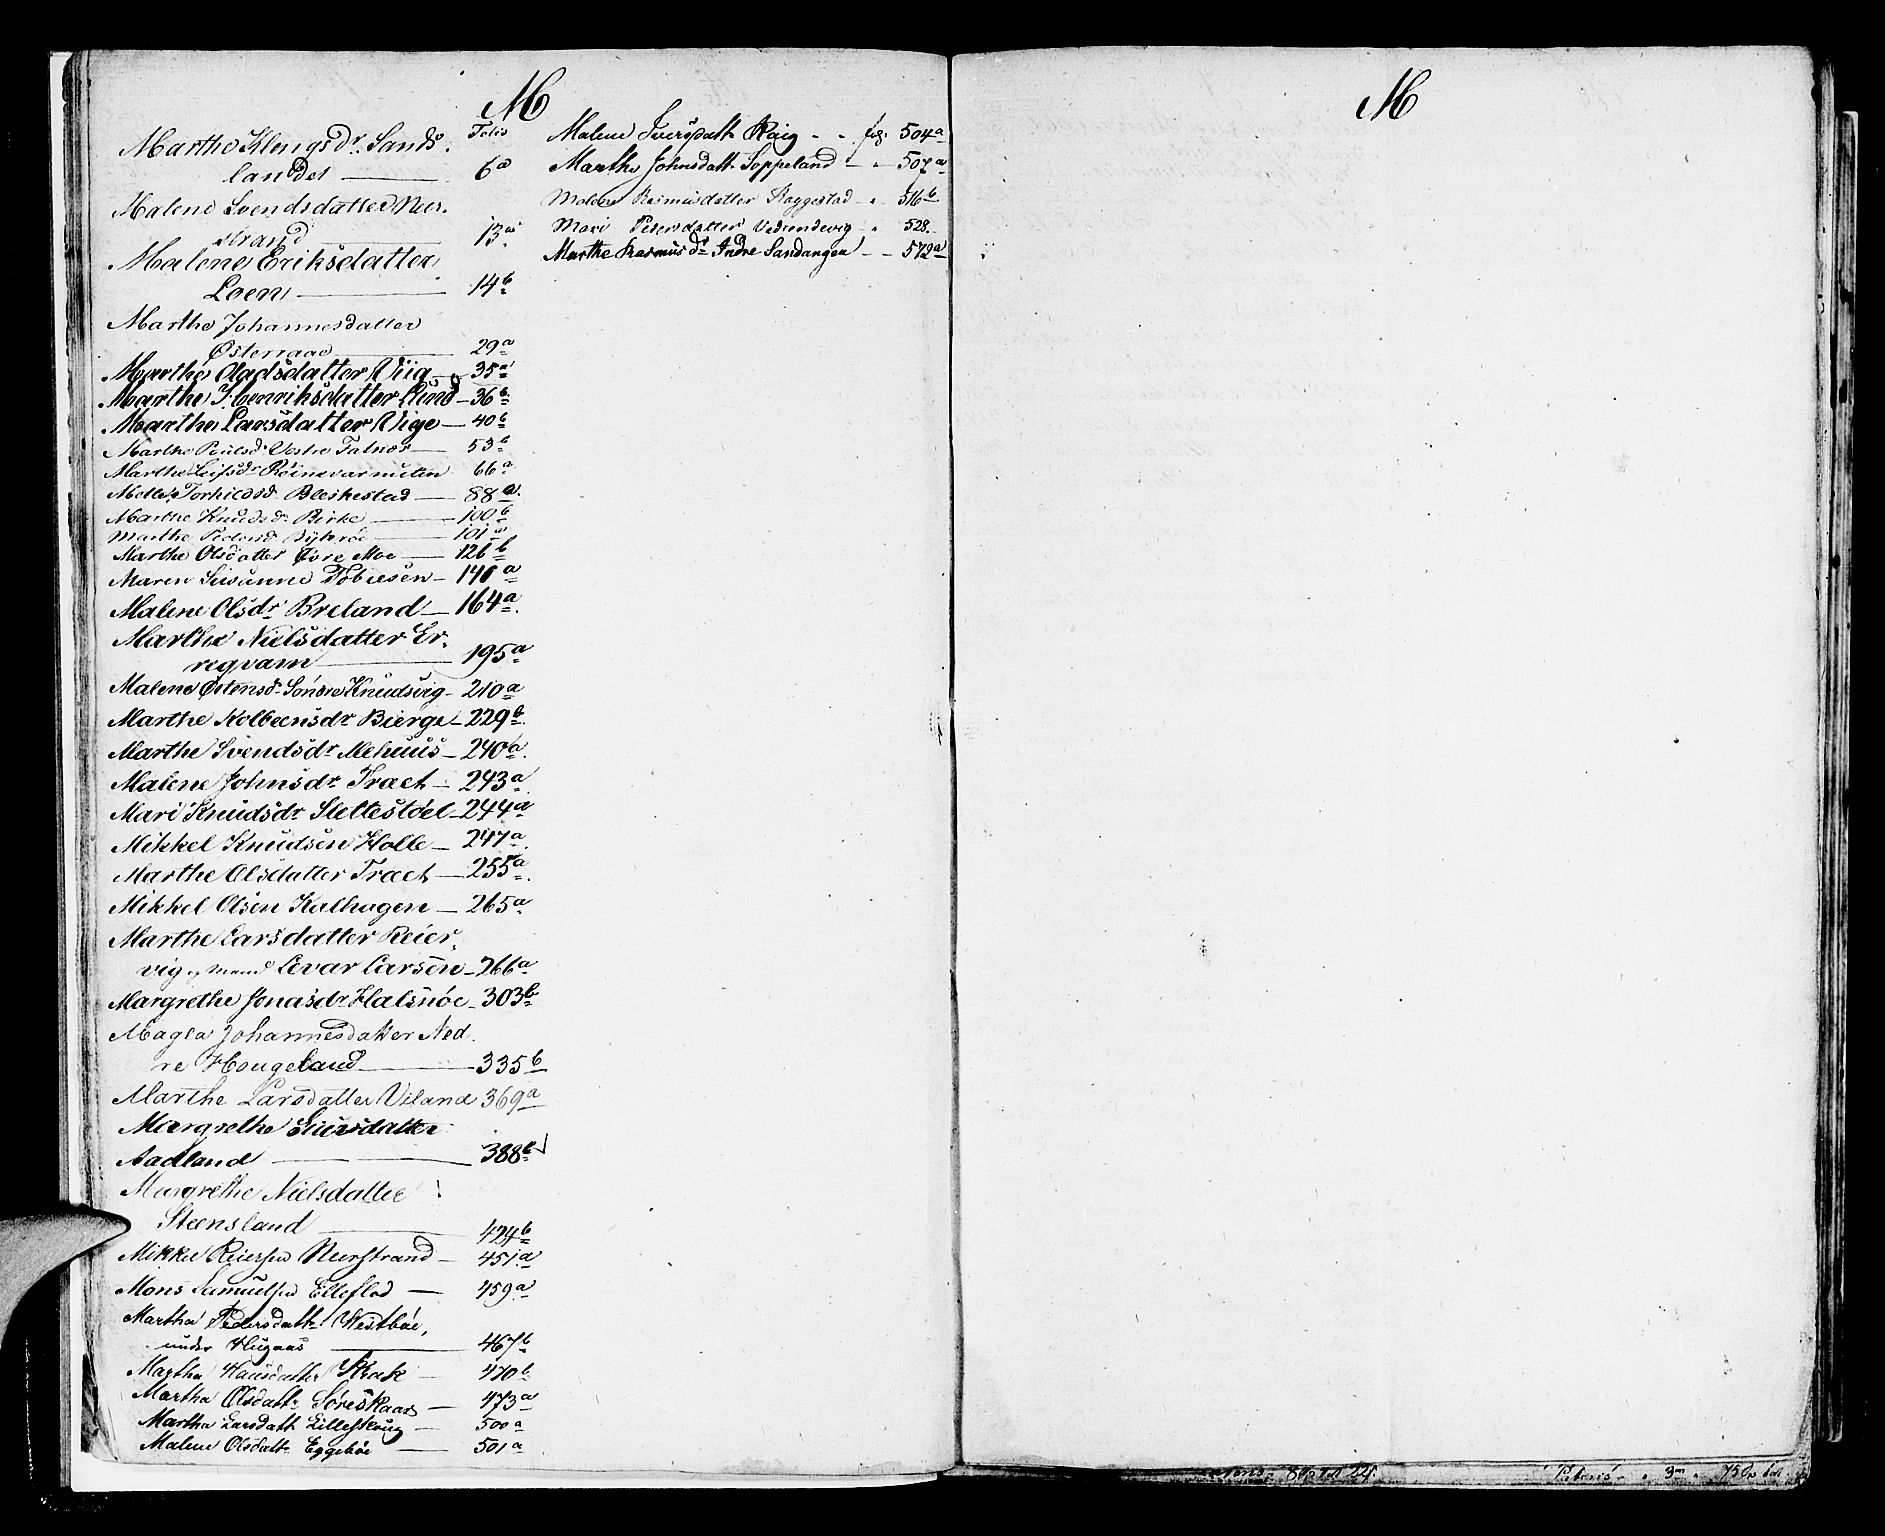 M
Folio
Marthe Klengsdr. Sands-
landet — 6a
Malene Svendsdatter Ner-
strand — 13a
Malene Eriksdatter
Loen — 14b
Marthe Johannesdatter
Østeraae — 29a
Marthe Oladsdatter Viig — 35a
Marthe Henriksdatter Lund — 36b
Marthe Larsdatter Vige — 40b
Marthe Poulsdr Vestre Talnes — 53b
Marthe Leifsdr Røinevarmuten 66a
Mette Torkildsd. Bleskestad — 88a.
Marthe Knudsdr Birke — 100b
Marthe Pedersd. — 101a
Marthe Olsdatter Øvre Moe — 126b
Maren Susanne Tobiesen — 140a
Malene Olsdr Breland — 164a.
Marthe Nielsdatter Er-
regvam — 195a
Malene Østensdr Søndre Knudsvig — 210a
Marthe Kolbeensdr Bierge — 229b.
Marthe Svendsdr Mehuus — 240a.
Malene Johnsdr Traet — 243a.
Mari Knudsdr Slettestøel — 244a
Mikkel Knudsen Holle — 247a.
Marthe Olsdatter Traet — 255a.
Mikkel Olsen Kalhagen — 265a
Marthe Larsdatter Reier-
vig og mand Levar Larsen — 266a
Margrethe Jonasdr Halsnøe — 303b
Magla Johannesdatter Ned-
re Hougeland — 335b
Marthe Larsdatter Viland 369a
Margrethe Siursdatter
Aadland — 388b
Margrethe Nielsdatter
Steensland — 424b
Mikkel Reiersen Nerstrand — 451a
Mons Samuelsen Elleflod — 459a
Martha Pedersdattr Westbøe,
under Hugaas — 467b
Martha Hansdatter Skak — 470b
Martha Olsdattr Søreskaar — 473a
Martha Larsdatt Lilleskoug — 500a
Malene Olsdattr Eggebøe — 501a
Malene Iversdatt Røig - - fog. 504a
Marthe Johnsdatt Soppeland - - 507a
Malene Rasmusdatter Raggestad - - 516b
Mari Pedersdatter Vedrendevig - 528.
Marthe Rasmusdr Indre Sandangen - - 572a
M